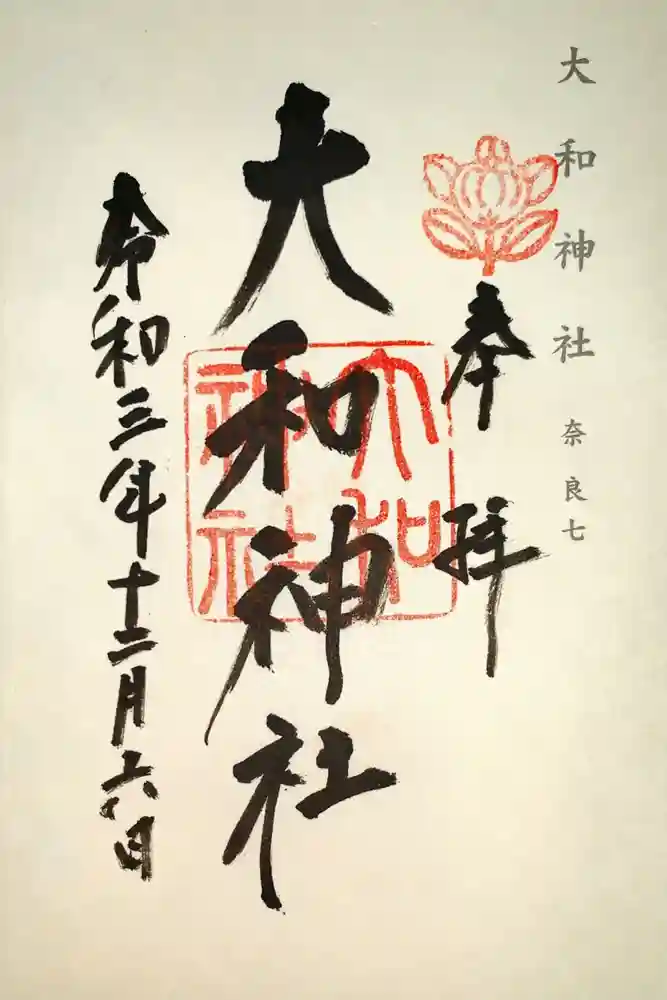 大和神社 奈良七
奉拝
大和神社
大和神社
令和三年十二月六日